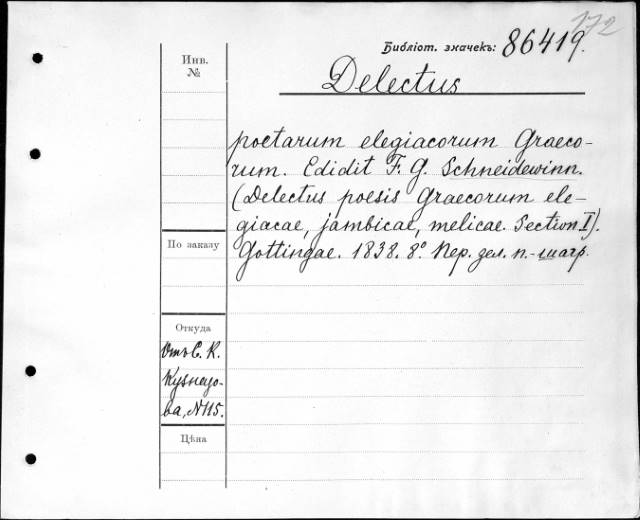 172
Библіот. значекъ: 86419.
Инв.
№
Delectus
poetarum elegiacorum Graeco-
rum. Edidit F. G. Schneidewinn.
(Delectus poesis Graecorum ele-
giacae, jambicae, melicae. Section. I).
По заказу
Gottingae. 1838. 8° Пер. зел. п.-шагр.
Откуда
Отъ С. К.
Кузнецо-
ва, №115.
Цѣна